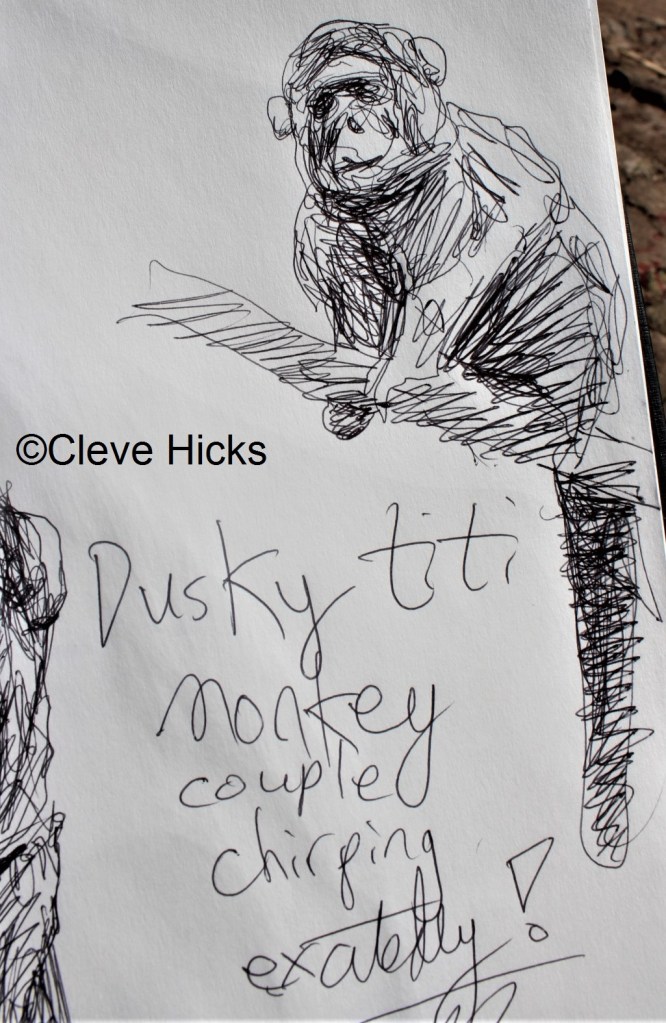 ©Cleve Hicks
Dusky titi
monkey
couple
chirping
exatedly!